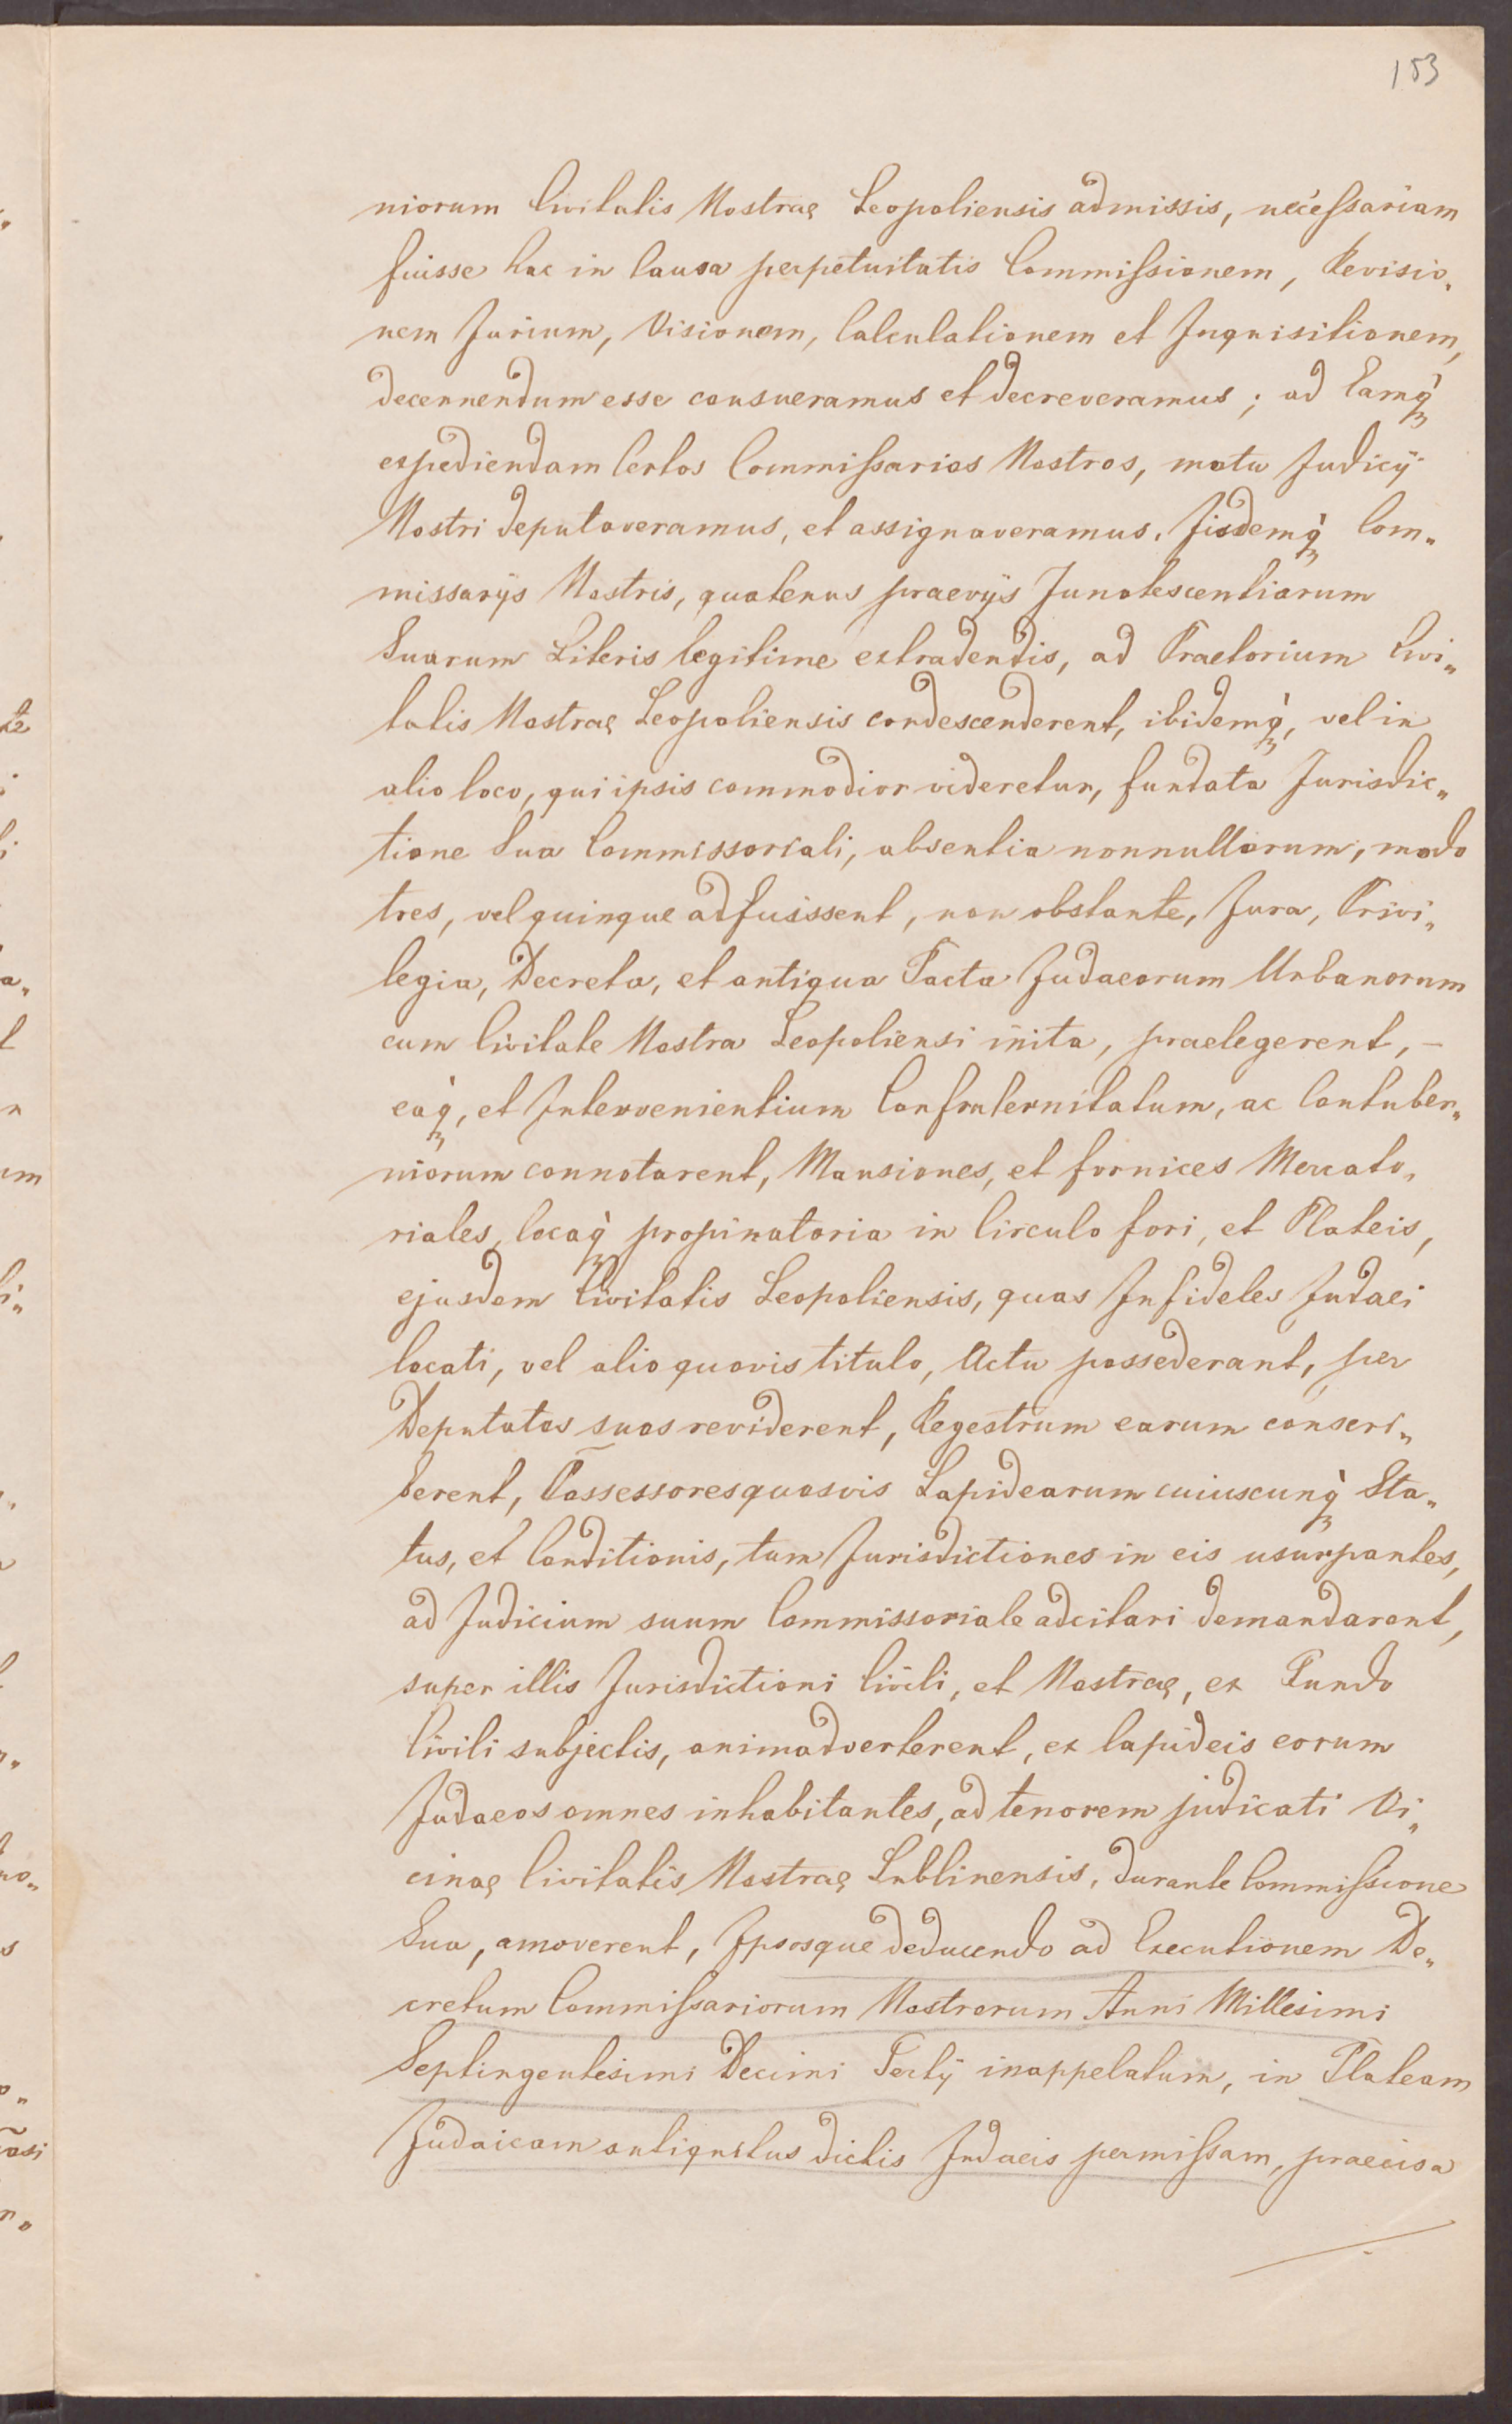 153
niorum Civitatis Nostrae Leopoliensis admissis, necessariam
fuisse hac in Causa perpetuitatis Commissionem, Revisio„
nem Jurium, Visionem, Calculationem et Inquisitionem,
decernendum esse consueramus et decreveramus; ad Eamq̀
expediendam Certos Commissarios Nostros, motu Judicij
Nostri deputaveramus, et assignaveramus. Iisdemq̀ Com„
missarijs Nostris, quatenus praevijs Innotescentiarum
Suarum Literis legitime extradendis, ad Praetorium Civi„
tatis Nostrae Leopoliensis condescenderent, ibidemq̀, vel in
alio loco, qui ipsis commodior videretur, fundata Jurisdic„
tione Sua Commissoriali, absentia nonnullorum, modo
tres, vel quinque adfuissent, non obstante, Jura, Privi„
legia, Decreta, et antiqua Pacta Judaeorum Urbanorum
cum Civitate Nostra Leopoliensi inita, praelegerent, –
eaq̀, et Intervenientium Confraternitatum, ac Contuber„
niorum connotarent, Mansiones, et fornices Mercato„
riales, locaq̀ propinatoria in Circulo fori, et Plateis,
ejusdem Civitatis Leopoliensis, quas Infideles Judaei
locati, vel alio quovis titulo, Actu possederant, per
Deputatos suos reviderent, Regestrum earum conscri„
berent, Possessores quosvis Lapidearum cuiuscunq̀ Sta„
tus, et Conditionis, tum Jurisdictiones in eis usurpantes,
ad Judicium suum Commissoriale adcitari demandarent,
super illis Jurisdictioni Civili, et Nostrae, ex Fundo
Civili subjectis, animadverterent, ex lapideis eorum
Judaeos omnes inhabitantes, ad tenorem judicati Vi„
cinae Civitatis Nostrae Lublinensis, durante Commissione
Sua, amoverent, Ipsosque deducendo ad Executionem De„
cretum Commissariorum Nostrorum Anni Millesimi
Septingentesimi Decimi Tertij inappelatum, in Plateam
Judaicam antiquitus dictis Judaeis permissam, praecisa